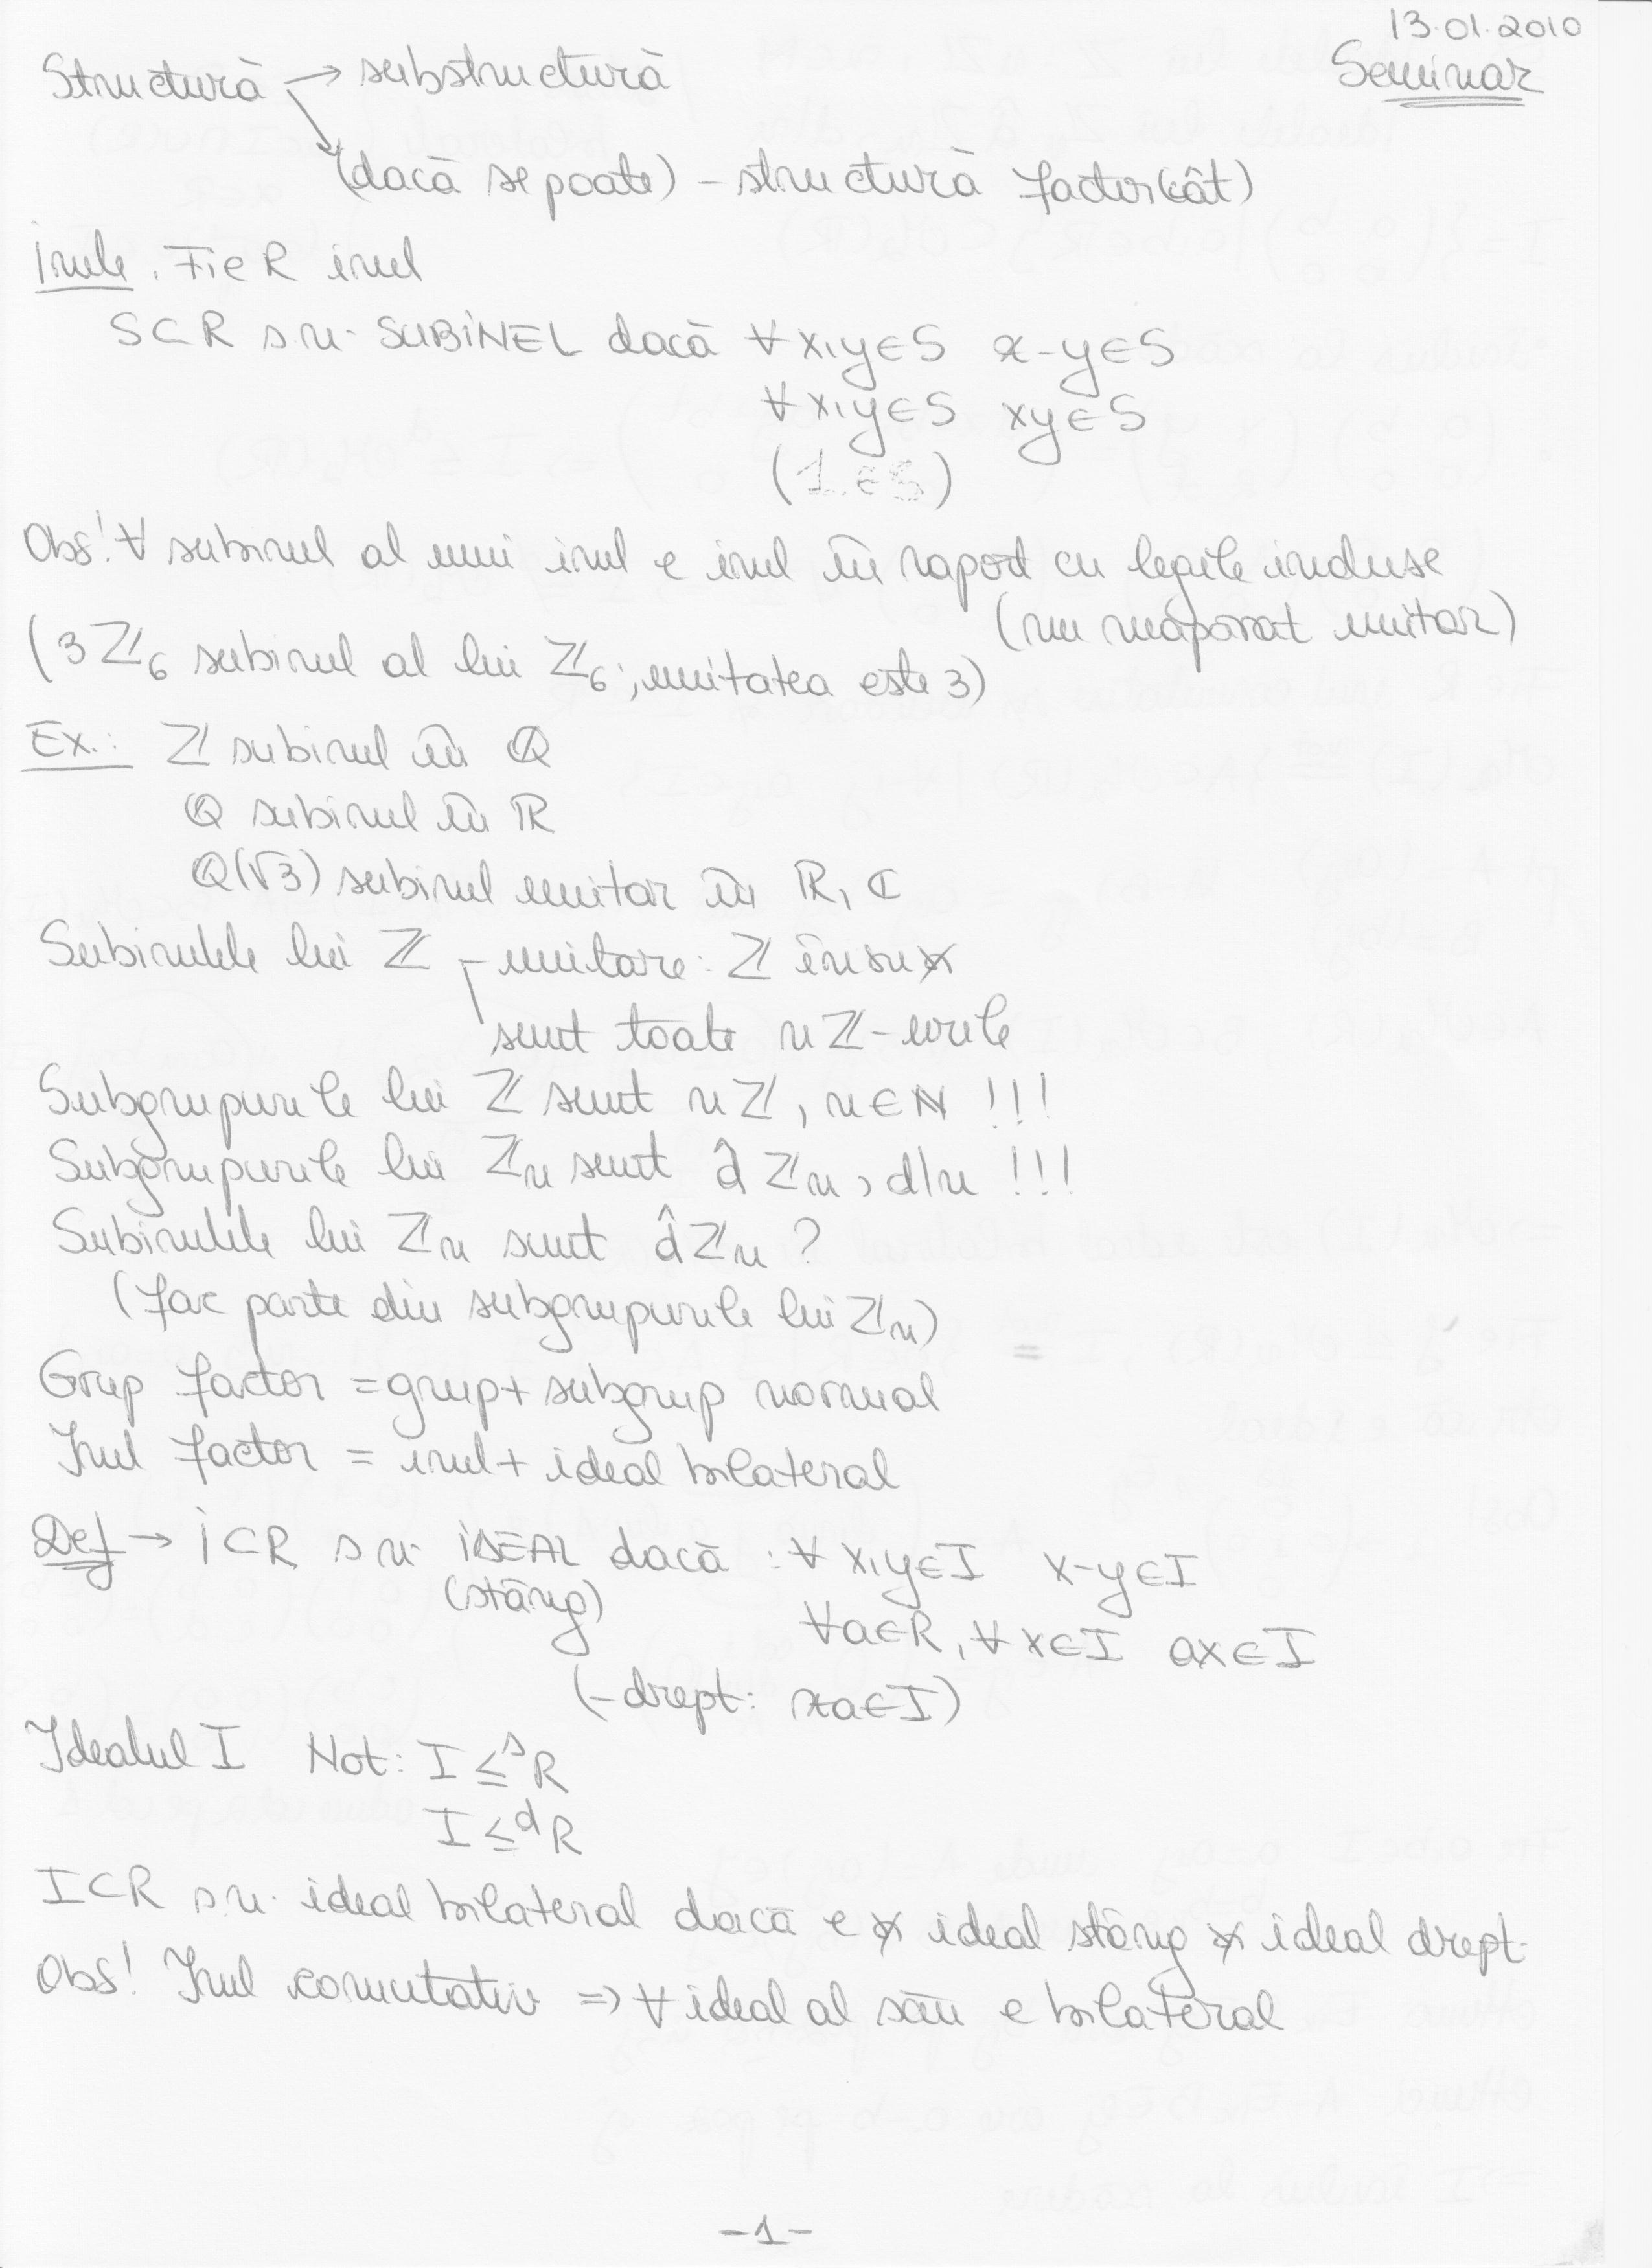 13.01.2010
Seminar
Structură → substructură
(dacă se poate) - structură factor (cât)
Inele. Fie R inel
S⊂R s.n. SUBINEL dacă ∀x,y∈S x-y∈S
∀x,y∈S xy∈S
(1∈S)
Obs! ∀ subinel al unui inel e inel în raport cu legile induse
(nu neapărat unitar)
(3ℤ₆ subinel al lui ℤ₆; unitatea este 3)
Ex.: ℤ subinel în ℚ
ℚ subinel în ℝ
ℚ(√3) subinel unitar în ℝ, ℂ
Subinelele lui ℤ - unitare: ℤ însuși
sunt toate nℤ-urile
Subgrupurile lui ℤ sunt nℤ, n∈ℕ !!!
Subgrupurile lui ℤₙ sunt d̂ℤₙ, d|n !!!
Subinelele lui ℤₙ sunt d̂ℤₙ ?
(fac parte din subgrupurile lui ℤₙ)
Grup factor = grup + subgrup normal
Inel factor = inel + ideal bilateral
Def → I⊂R s.n. IDEAL dacă : ∀x,y∈I x-y∈I
(stâng)
∀a∈R, ∀x∈I ax∈I
(-drept: xa∈I)
Idealul I Not: I ≤ˢ R
I ≤ᵈ R
I⊂R s.n. ideal bilateral dacă e și ideal stâng și ideal drept.
Obs! Inel comutativ ⇒ ∀ ideal al său e bilateral
-1-